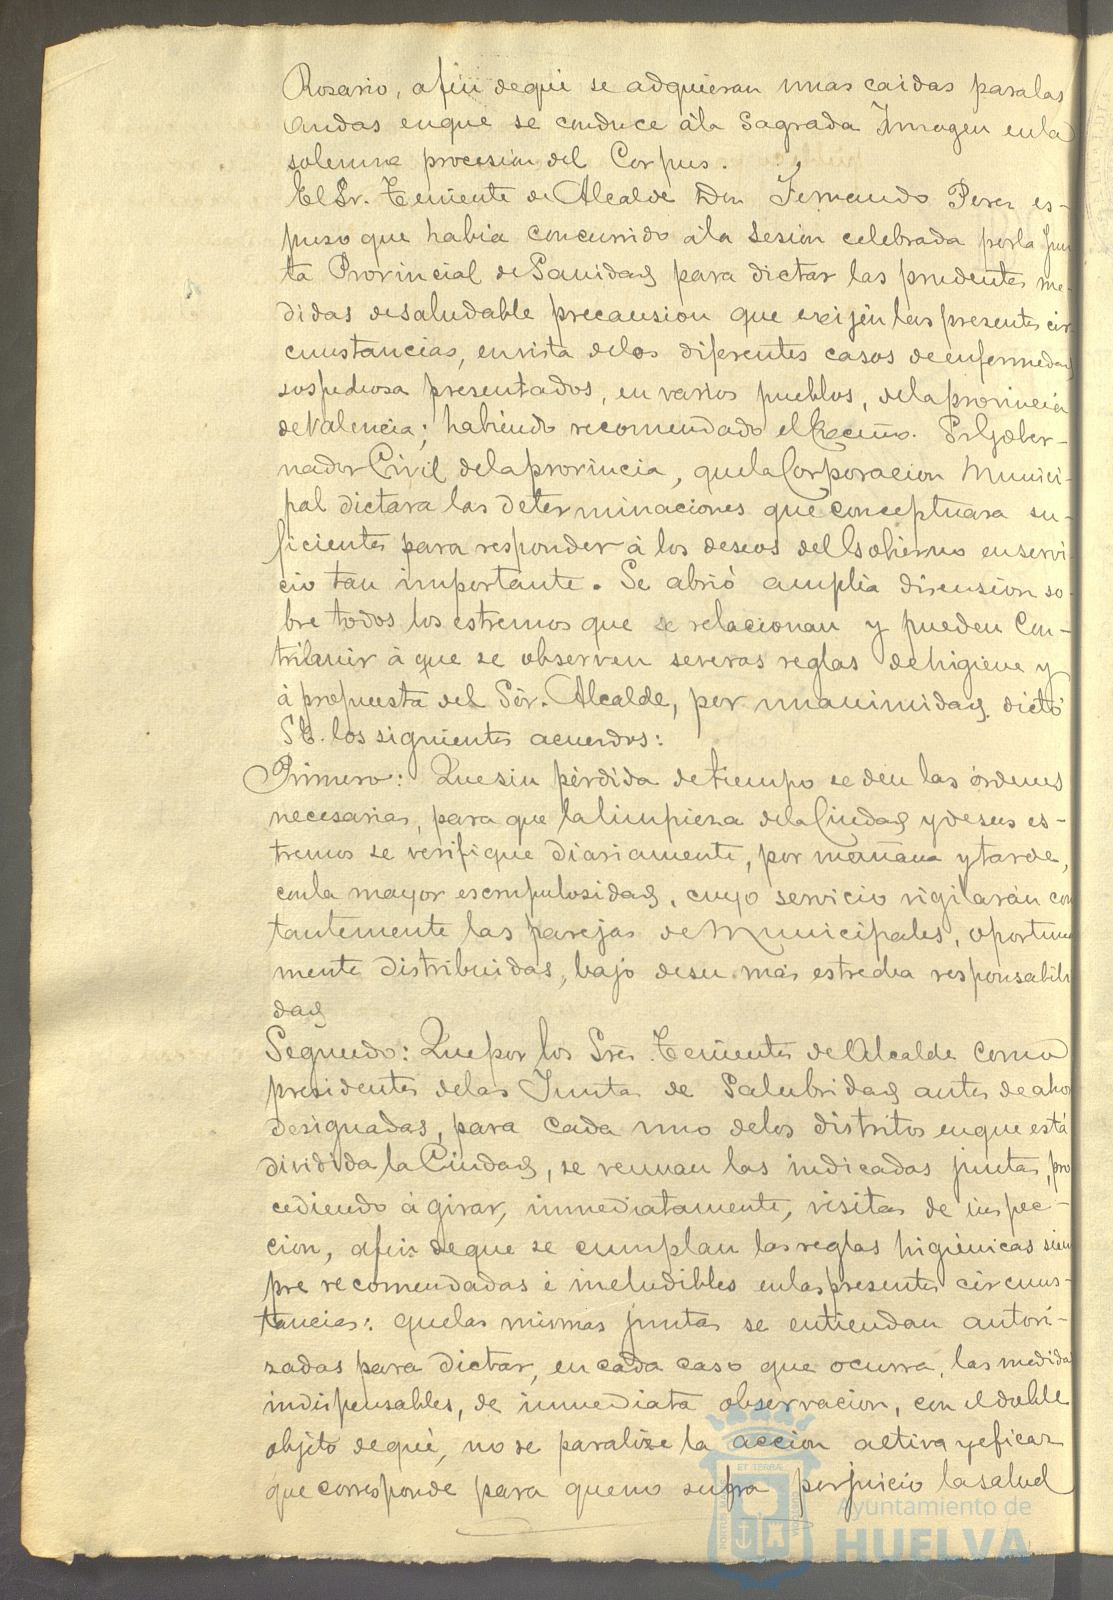 Rosario, a fin de que se adquieran unas caidas para las
andas en que se conduce á la Sagrada Imagen en la
solemne procesion del Corpus.
El Sr. Teniente de Alcalde Don Fernando Perez es-
puso que habia concurrido á la sesion celebrada por la Jun
ta Provincial de Sanidad para dictar las prudentes me-
didas de saludable precausion que exijen las presentes cir
cunstancias, en vista de los diferentes casos de enfermedad
sospechosa presentados, en varios pueblos, de la provincia
de Valencia; habiendo recomendado el Excmo. Sr. Gober-
nador Civil de la provincia, que la Corporacion Munici-
pal dictara las determinaciones que conceptuara su-
ficientes para responder á los deseos del Gobierno en servi
cio tan importante. Se abrió amplia discusion so-
bre todos los estremos que se relacionan y pueden Con-
tribuir á que se observen severas reglas de higiene y
á propuesta del Sór. Alcalde, por unanimidad, dictó
S.E. los siguientes acuerdos:
Primero: Que sin pérdida de tiempo se den las órdenes
necesarias, para que la limpieza de la Ciudad y de sus es-
tremos se verifique diariamente, por mañana y tarde,
con la mayor escrupulosidad, cuyo servicio vigilarán con
tantemente las parejas de Municipales, oportuna
mente distribuidas, bajo de su más estrecha responsabili
dad
Segundo: Que por los Sres. Tenientes de Alcalde como
presidentes de las Juntas de Salubridad antes de aho
designadas, para cada uno de los distritos en que está
dividida la Ciudad, se reunan las indicadas juntas, pro
cediendo á girar, inmediatamente, visitas de inspec-
cion, a fin de que se cumplan las reglas higiénicas siem
pre recomendadas é ineludibles en las presentes circuns-
tancias: que las mismas juntas se entiendan autori-
zadas para dictar, en cada caso que ocurra, las medidas
indispensables, de inmediata observacion, con el doble
objeto de que, no se paralize la accion activa y eficaz
que corresponde para que no sufra perjuicio la salud
Ayuntamiento de
HUELVA